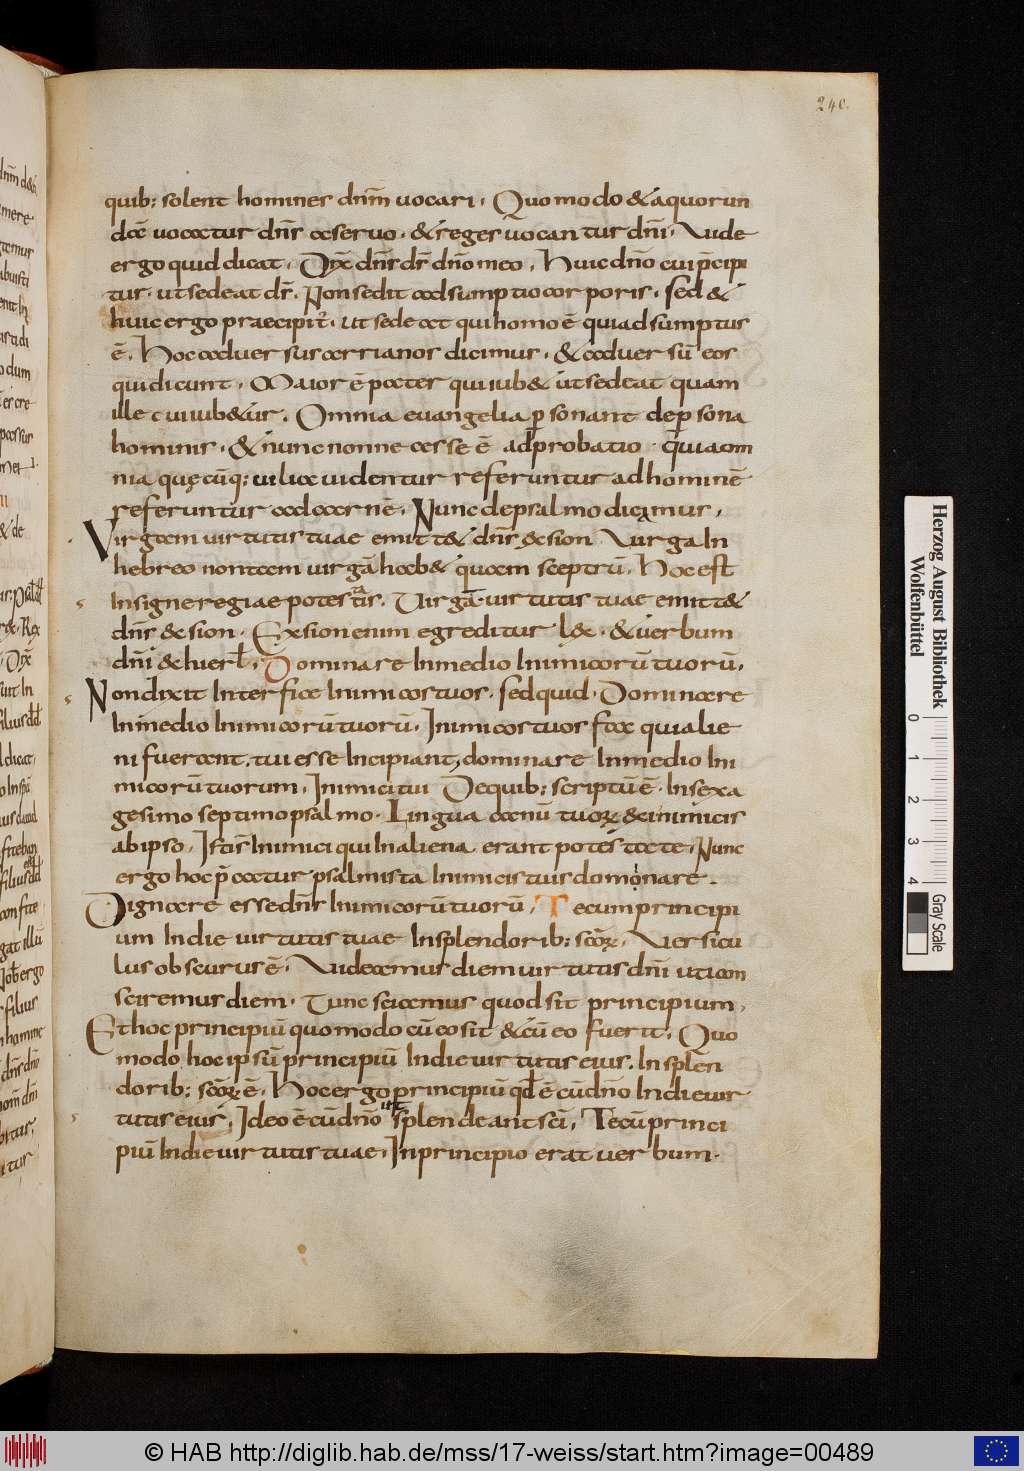 240.
quib: solent homines dnm̄ uocari. Quomodo & a quorun
dā uocatur dn̄s a seruo. & reges uocantur dn̄i. Uide
ergo quid dicat. Dix̄ dn̄s dn̄o meo. Huic dn̄o cui p̄cipi
tur. ut sedeat dr̄. Non sedit adsumptio corporis. sed &
huic ergo praecipit̄. ut sedeat qui homo ē quiadsumptus
ē. Hoc aduersus arrianos dicimus. & aduersū eos
qui dicunt. Maior ē pater qui iub& ut sedeat quam
ille cui iub&ur. Omnia euangelia ꝑsonant de ꝑsona
hominis. & nunc nonne necesse ē adprobatio quia om
nia quęcūq: uilia uidentur referuntur ad hominē
referuntur ad carnē. Nunc de psalmo dicamus.
Uirgam uirtutis tuae emitt& dn̄s & sion Uirga In
hebreo non tam uirgā hab& quam sceptrū. Hoc est
Insigne regiae potestatis. Uirgā uirtutis tuae emitt&
dn̄s & sion. Ex sion enim egreditur l&. & uerbum
dn̄i & hierl̄. Dominare In medio Inimicorū tuorū.
Non dixit Interfice Inimicos tuos. sed quid. Dominare
In medio Inimicorū tuorū. Inimicos tuos fac qui alie
ni fuerant. tui esse Incipiant, dominare In medio Ini
micorū tuorum. Inimici tui De quib: scriptū ē. In sexa
gesimo septimo psalmo. Lingua canū tuoꝝ & inimicis
ab ipso. Istis Inimici qui In aliena erant potestate. Nunc
ergo hoc p̄catur psalmista Inimicis tuis dominare.
Dignare esse dn̄s Inimicorū tuorū. Tecum principi
um In die uirtutis tuae In splendorib: sc̄oꝝ. Uersicu
lus obscurus ē. Uideamus diem uirtutis dn̄i uti con
sciremus diem. Tunc sciamus quod sit principium.
Et hoc principiū quomodo cū eo sit & cū eo fuerit. Quo
modo hoc ipsū principiū In die uirtutis eius. In splen
dorib: sc̄oꝝ ē. Hoc ergo principiū qd̄ ē cū dn̄o In die uir
tutis eius. Ideo ē cū dn̄o ut splendeant sc̄i. Tecū princi
piū In die uirtutis tuae. In principio erat uerbum.
Herzog August Bibliothek
Wolfenbüttel
0 1 2 3 4
Gray Scale
© HAB http://diglib.hab.de/mss/17-weiss/start.htm?image=00489